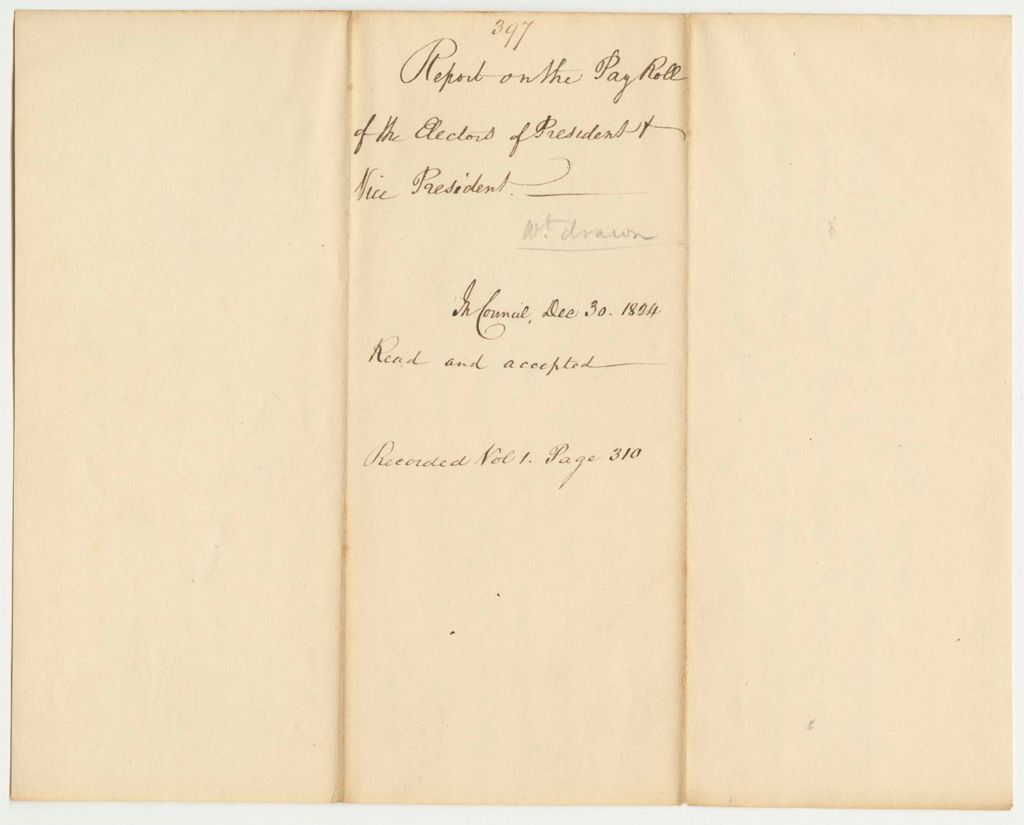 397
Report on the Pay Roll
of the Electors of President &
Vice President.
Wt. drawn
In Council, Dec 30. 1824
Read and accepted
Recorded Vol 1. Page 310